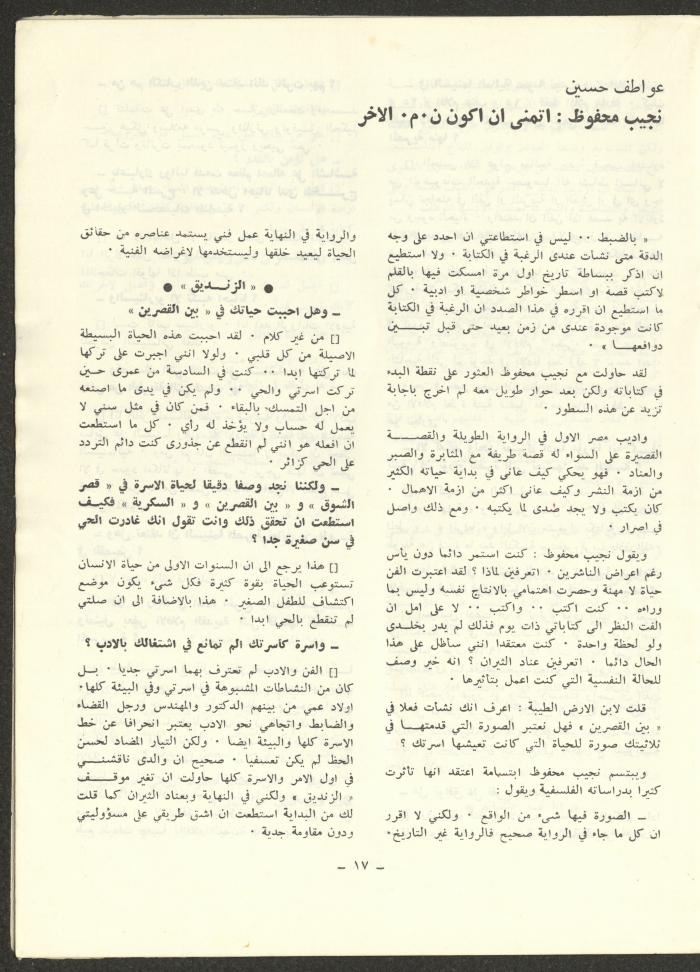 عواطف حسين
نجيب محفوظ : اتمنى ان اكون ن٠م٠ الاخر
« بالضبط ٠٠ ليس في استطاعتي ان احدد على وجه
الدقة متى نشأت عندى الرغبة في الكتابة ٠ ولا استطيع
ان اذكر ببساطة تاريخ اول مرة امسكت فيها بالقلم
لاكتب قصة او اسطر خواطر شخصية او ادبية ٠ كل
ما استطيع ان اقرره في هذا الصدد ان الرغبة في الكتابة
كانت موجودة عندى من زمن بعيد حتى قبل تبــــين
دوافعهـــا » ٠
لقد حاولت مع نجيب محفوظ العثور على نقطة البدء
في كتاباته ولكن بعد حوار طويل معه لم اخرج باجابة
تزيد عن هذه السطور ٠
واديب مصر الاول في الرواية الطويلة والقصـــــة
القصيرة على السواء له قصة طريفة مع المثابرة والصبر
والعناد ٠ فهو يحكي كيف عانى في بداية حياته الكثير
من ازمة النشر وكيف عانى اكثر من ازمة الاهمال ٠
كان يكتب ولا يجد صدى لما يكتبه ٠ ومع ذلك واصل
في اصرار ٠
ويقول نجيب محفوظ : كنت استمر دائما دون يأس
رغم اعراض الناشرين ٠ اتعرفين لماذا ؟ لقد اعتبرت الفن
حياة لا مهنة وحصرت اهتمامي بالانتاج نفسه وليس بما
وراءه ٠٠ كنت اكتب ٠٠ واكتب ٠٠ لا على امل ان
الفت النظر الى كتاباتي ذات يوم فذلك لم يدر بخلــدى
ولو لحظة واحدة ٠ كنت معتقدا انني سأظل على هذا
الحال دائما ٠ اتعرفين عناد الثيران ؟ انه خير وصف
للحالة النفسية التي كنت اعمل بتأثيرها ٠
قلت لابن الارض الطيبة : اعرف انك نشأت فعلا في
« بين القصرين » فهل نعتبر الصورة التي قدمتهـــا في
ثلاثيتك صورة للحياة التي كانت تعيشها اسرتك ؟
ويبتسم نجيب محفوظ ابتسامة اعتقد انها تأثرت
كثيرا بدراساته الفلسفية ويقول :
ــ الصورة فيها شىء من الواقع ٠ ولكني لا اقرر
ان كل ما جاء في الرواية صحيح فالرواية غير التاريخ٠
والرواية في النهاية عمل فني يستمد عناصره من حقائق
الحياة ليعيد خلقها وليستخدمها لاغراضه الفنية ٠
● « الزنــديق » ●
ــ وهل احببت حياتك في « بين القصرين »
[] من غير كلام ٠ لقد احببت هذه الحياة البسيطة
الاصيلة من كل قلبي ٠ ولولا انني اجبرت على تركها
لما تركتها ابدا ٠٠ كنت في السادسة من عمرى حــين
تركت اسرتي والحي ٠٠ ولم يكن في يدى ما اصنعه
من اجل التمسك بالبقاء ٠ فمن كان في مثل سني لا
يعمل له حساب ولا يؤخذ له رأي ٠ كل ما استطعت
ان افعله هو انني لم انقطع عن جذورى كنت دائم التردد
على الحي كزائر ٠
ــ ولكننا نجد وصفا دقيقا لحياة الاسرة في « قصر
الشوق » و « بين القصرين » و « السكرية » فكيــف
استطعت ان تحقق ذلك وانت تقول انك غادرت الحي
في سن صغيرة جدا ؟
[] هذا يرجع الى ان السنوات الاولى من حياة الانسان
تستوعب الحياة بقوة كثيرة فكل شىء يكون موضع
اكتشاف للطفل الصغير ٠ هذا بالاضافة الى ان صلتي
لم تنقطع بالحي ابدا ٠
ــ واسرة كاسرتك الم تمانع في اشتغالك بالادب ؟
[] الفن والادب لم تعترف بهما اسرتي جديا ٠ بــل
كان من النشاطات المشبوهة في اسرتي وفي البيئة كلها٠
اولاد عمي من بينهم الدكتور والمهندس ورجل القضاء
والضابط واتجاهي نحو الادب يعتبر انحرافا عن خط
الاسرة كلها والبيئة ايضا ٠ ولكن التيار المضاد لحسن
الحظ لم يكن تعسفيا ٠ صحيح ان والدى ناقشنـــي
في اول الامر والاسرة كلها حاولت ان تغير موقـــف
« الزنديق » ولكني في النهاية وبعناد الثيران كما قلت
لك من البداية استطعت ان اشق طريقي على مسؤوليتي
ودون مقاومة جدية ٠
ــ ١٧ ــ